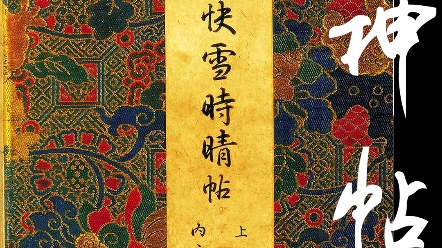 神帖
快雪時晴帖
上
内